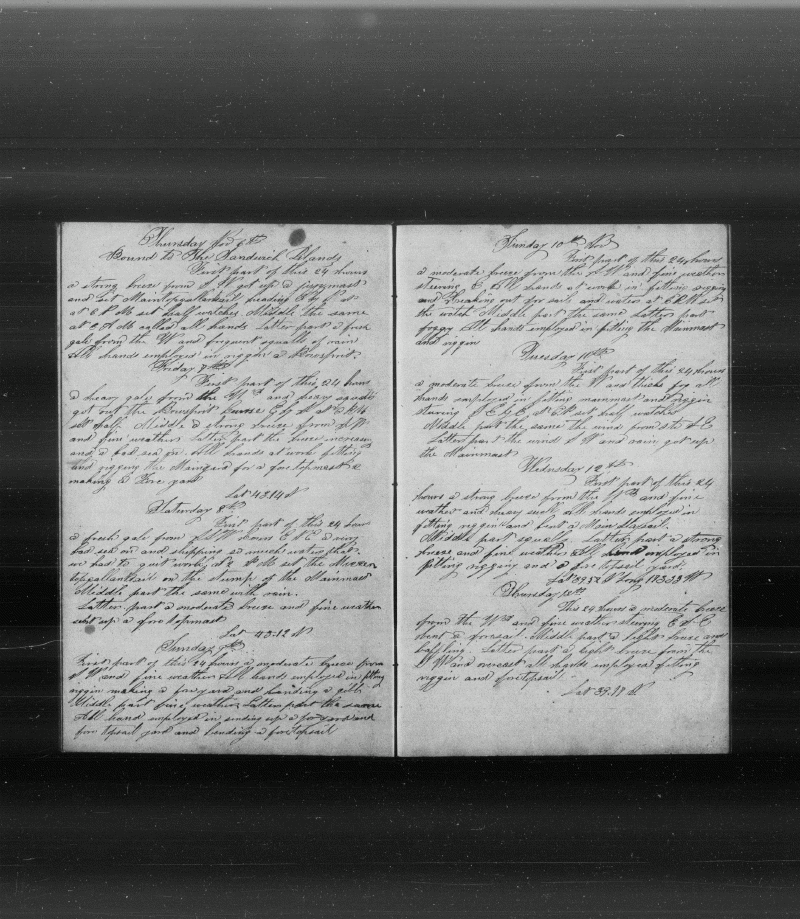 Thursday Nov 6th
Bound to The Sandwich Islands
First part of this 24 hours
a strong breeze from S W got up a jurymast
and set Main topgallantsail heading E by S at
at 6 P M set half watches Middle the same
at 7 A M called all hands Latter part a fresh
gale from the W and frequent squalls of rain
All hands employed in riggin a Bowsprit
Friday 7th
First part of this 24 hours
a heavy gale from the W and heavy squalls
got out the Bowsprit Course
set half Middle a strong breeze from
and fine weather Latter part the breeze increas
and a bad sea on All hands at work fitting
and rigging the Mainyard for a foretopmast &
making a Fore yard
Lat 43.14 N
Saturday 8th
First part of this 24 hours
a fresh gale from a very
bad set on and shipping so much water that
we had to quit work at 2 P M set the Mizzen
topgallantsail on the stump of the Mainmast
Middle part the same with rain.
Latter part a moderate breeze and fine weather
set up a fore topmast
Lat 43-12 N
Sunday 9th
First part of this 24 hours a moderate breeze from
W and fine weather All hands employed in fitting
riggin making a foreyard and bending a jib
Middle part fine weather Latter part the same
All hand employed in sending up a foreyard and
fore topsail yard and bending a foretopsail
Sunday 10th Nov
First part of this 24 hours
a moderate breeze from the S W and fine weather
steering E hands at work in fitting riggin
and Breaking out for sails and water at 6 P M set
the watch Middle part the same Latter part
foggy All hands employed in fitting the Mainmast
and riggin
Tuesday 11th
First part of this 24 hours
a moderate breeze from the W and thick fog all
hands employed in fitting mainmast and riggin
steering S E by E at 6 P M set half watches
Middle part the same the wind from
Latter part the wind S W and rain got up
the Mainmast
Wednesday 12th
First part of this 24
hours a strong breeze from the W and fine
weather and heavy swell all hands employed in
fitting riggin and bent a Main staysail.
Middle part squally Latter part a strong
breeze and fine weather All hand employed in
fitting rigging and a fore topsail yard.
Lat 39.52 N Long
Thursday 13th
This 24 hours a moderate breeze
from the W and fine weather steering E S E
bent a foresail. Middle part a light breeze and
baffling. Latter part a light breeze from the
S W and overcast all hands employed fitting
riggin and foretopsail
Lat 39.19 N